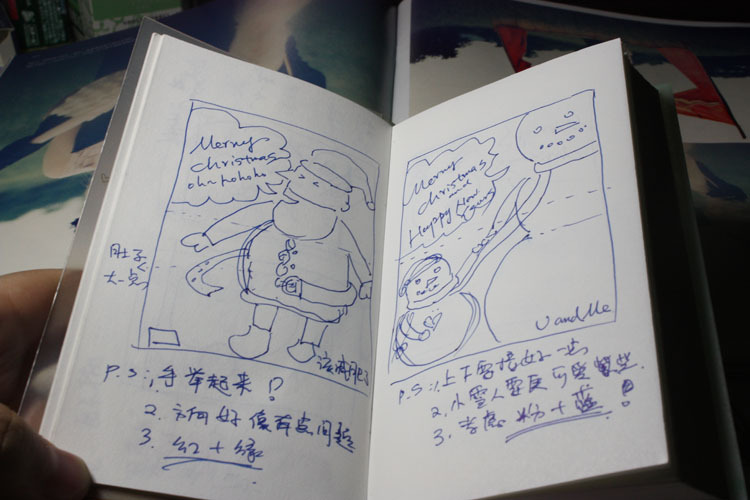 Merry
christmas
oha hohoho
肚子
大一点
该减肥了
P.S:1.手举起来!
2.方向好像有点问题
3.红+绿
Merry
christmas
and
Happy New
Years
U and Me
P.S:1.上下雪接好一些
2.小雪人要更可爱些
3.考虑粉+蓝!